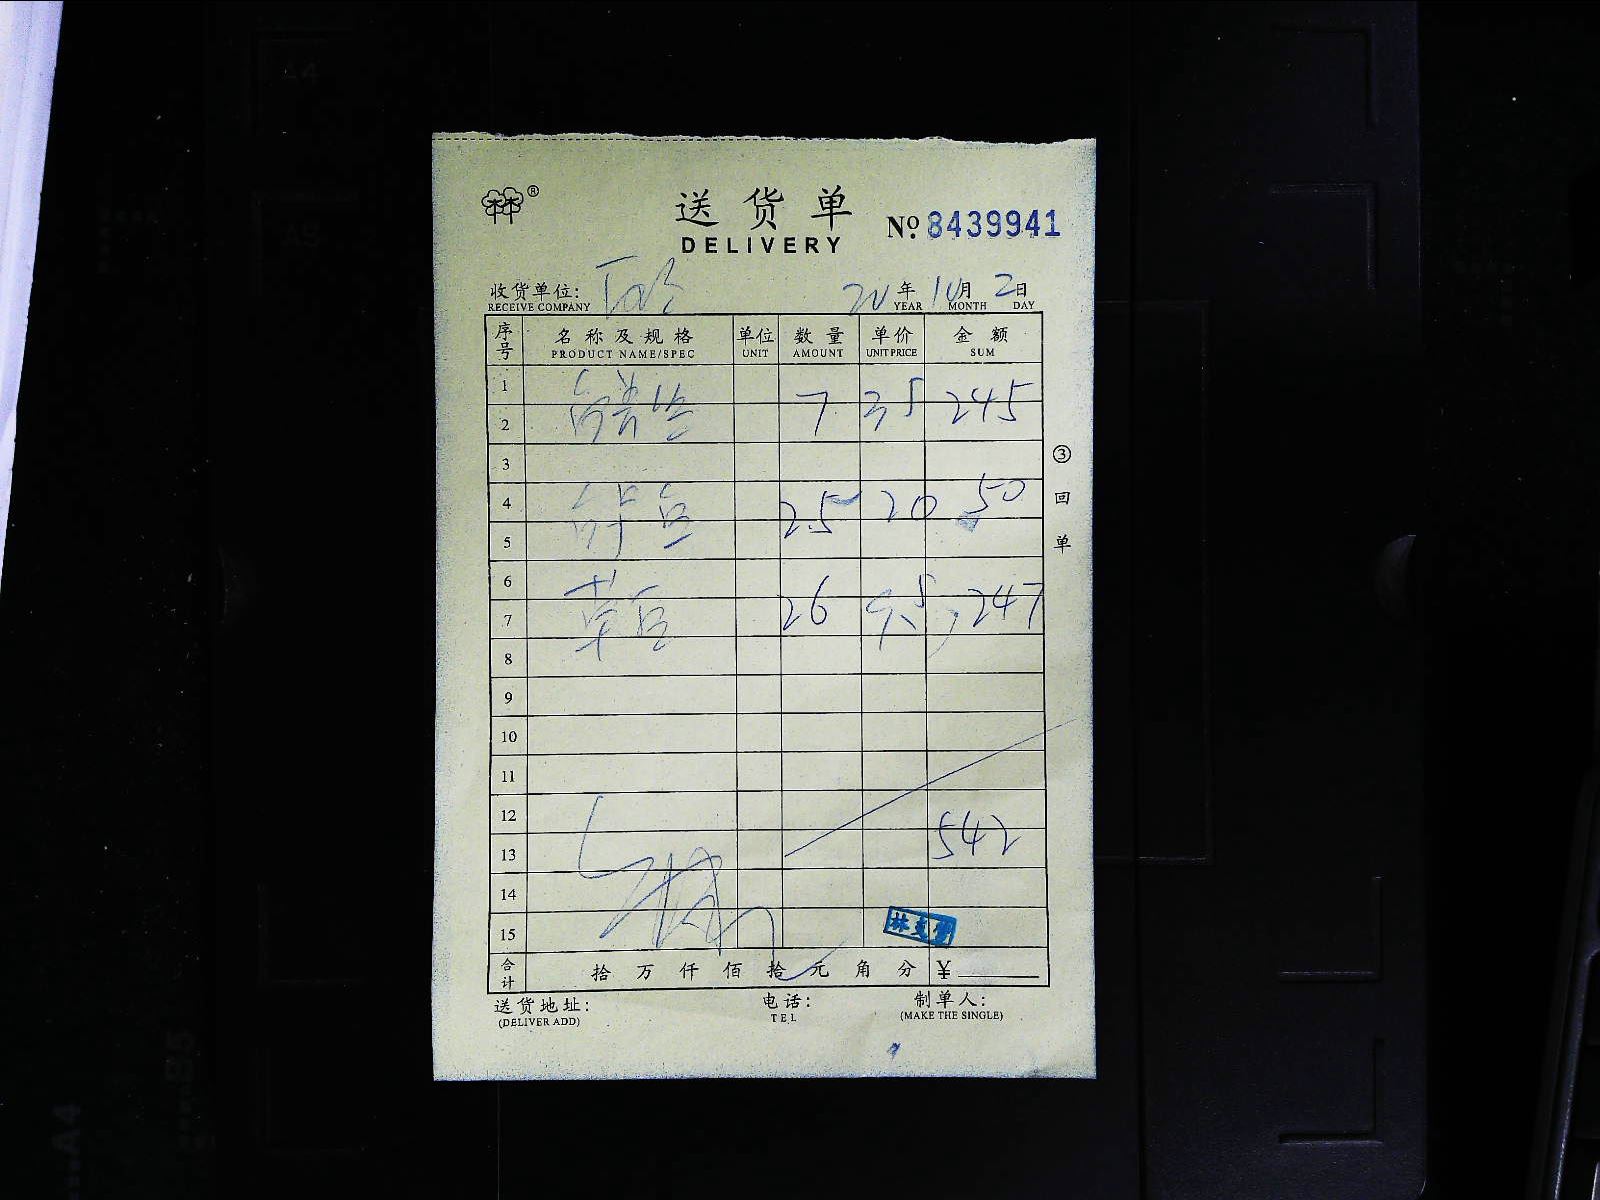 林林®
送货单
DELIVERY
№ 8439941
收货单位:
RECEIVE COMPANY
20年10月2日
YEAR MONTH DAY
序号 名称及规格 单位 数量 单价 金额
PRODUCT NAME/SPEC UNIT AMOUNT UNIT PRICE SUM
1
2 7 35 245
3
4 2.5 20 50
5
6
7 草豆 26 9.5 247
8
9
10
11
12
13 542
14
15
合计 拾万仟佰拾元角分 ¥
送货地址: 电话: 制单人:
(DELIVER ADD) TEL (MAKE THE SINGLE)
③回单